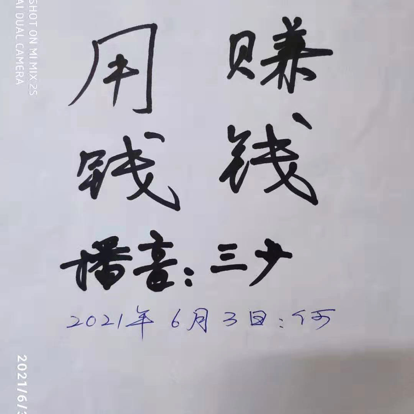 用 赚
钱 钱
播音：三少
2021年6月3日：何
SHOT ON MI MIX 2S
AI DUAL CAMERA